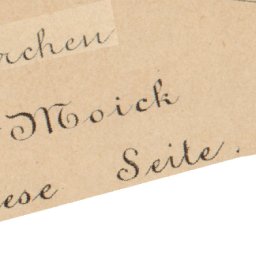 rchen
Moick
ese Seite.